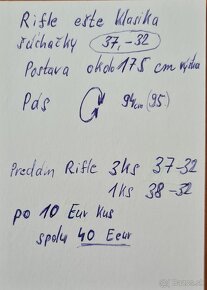 Rifle ešte klasika
šúchačky 37,-32
Postava okolo 175 cm výška
Pás 94cm (95)
Predám Rifle 3ks 37-32
1ks 38-32
po 10 Eur kus
spolu 40 Eeur